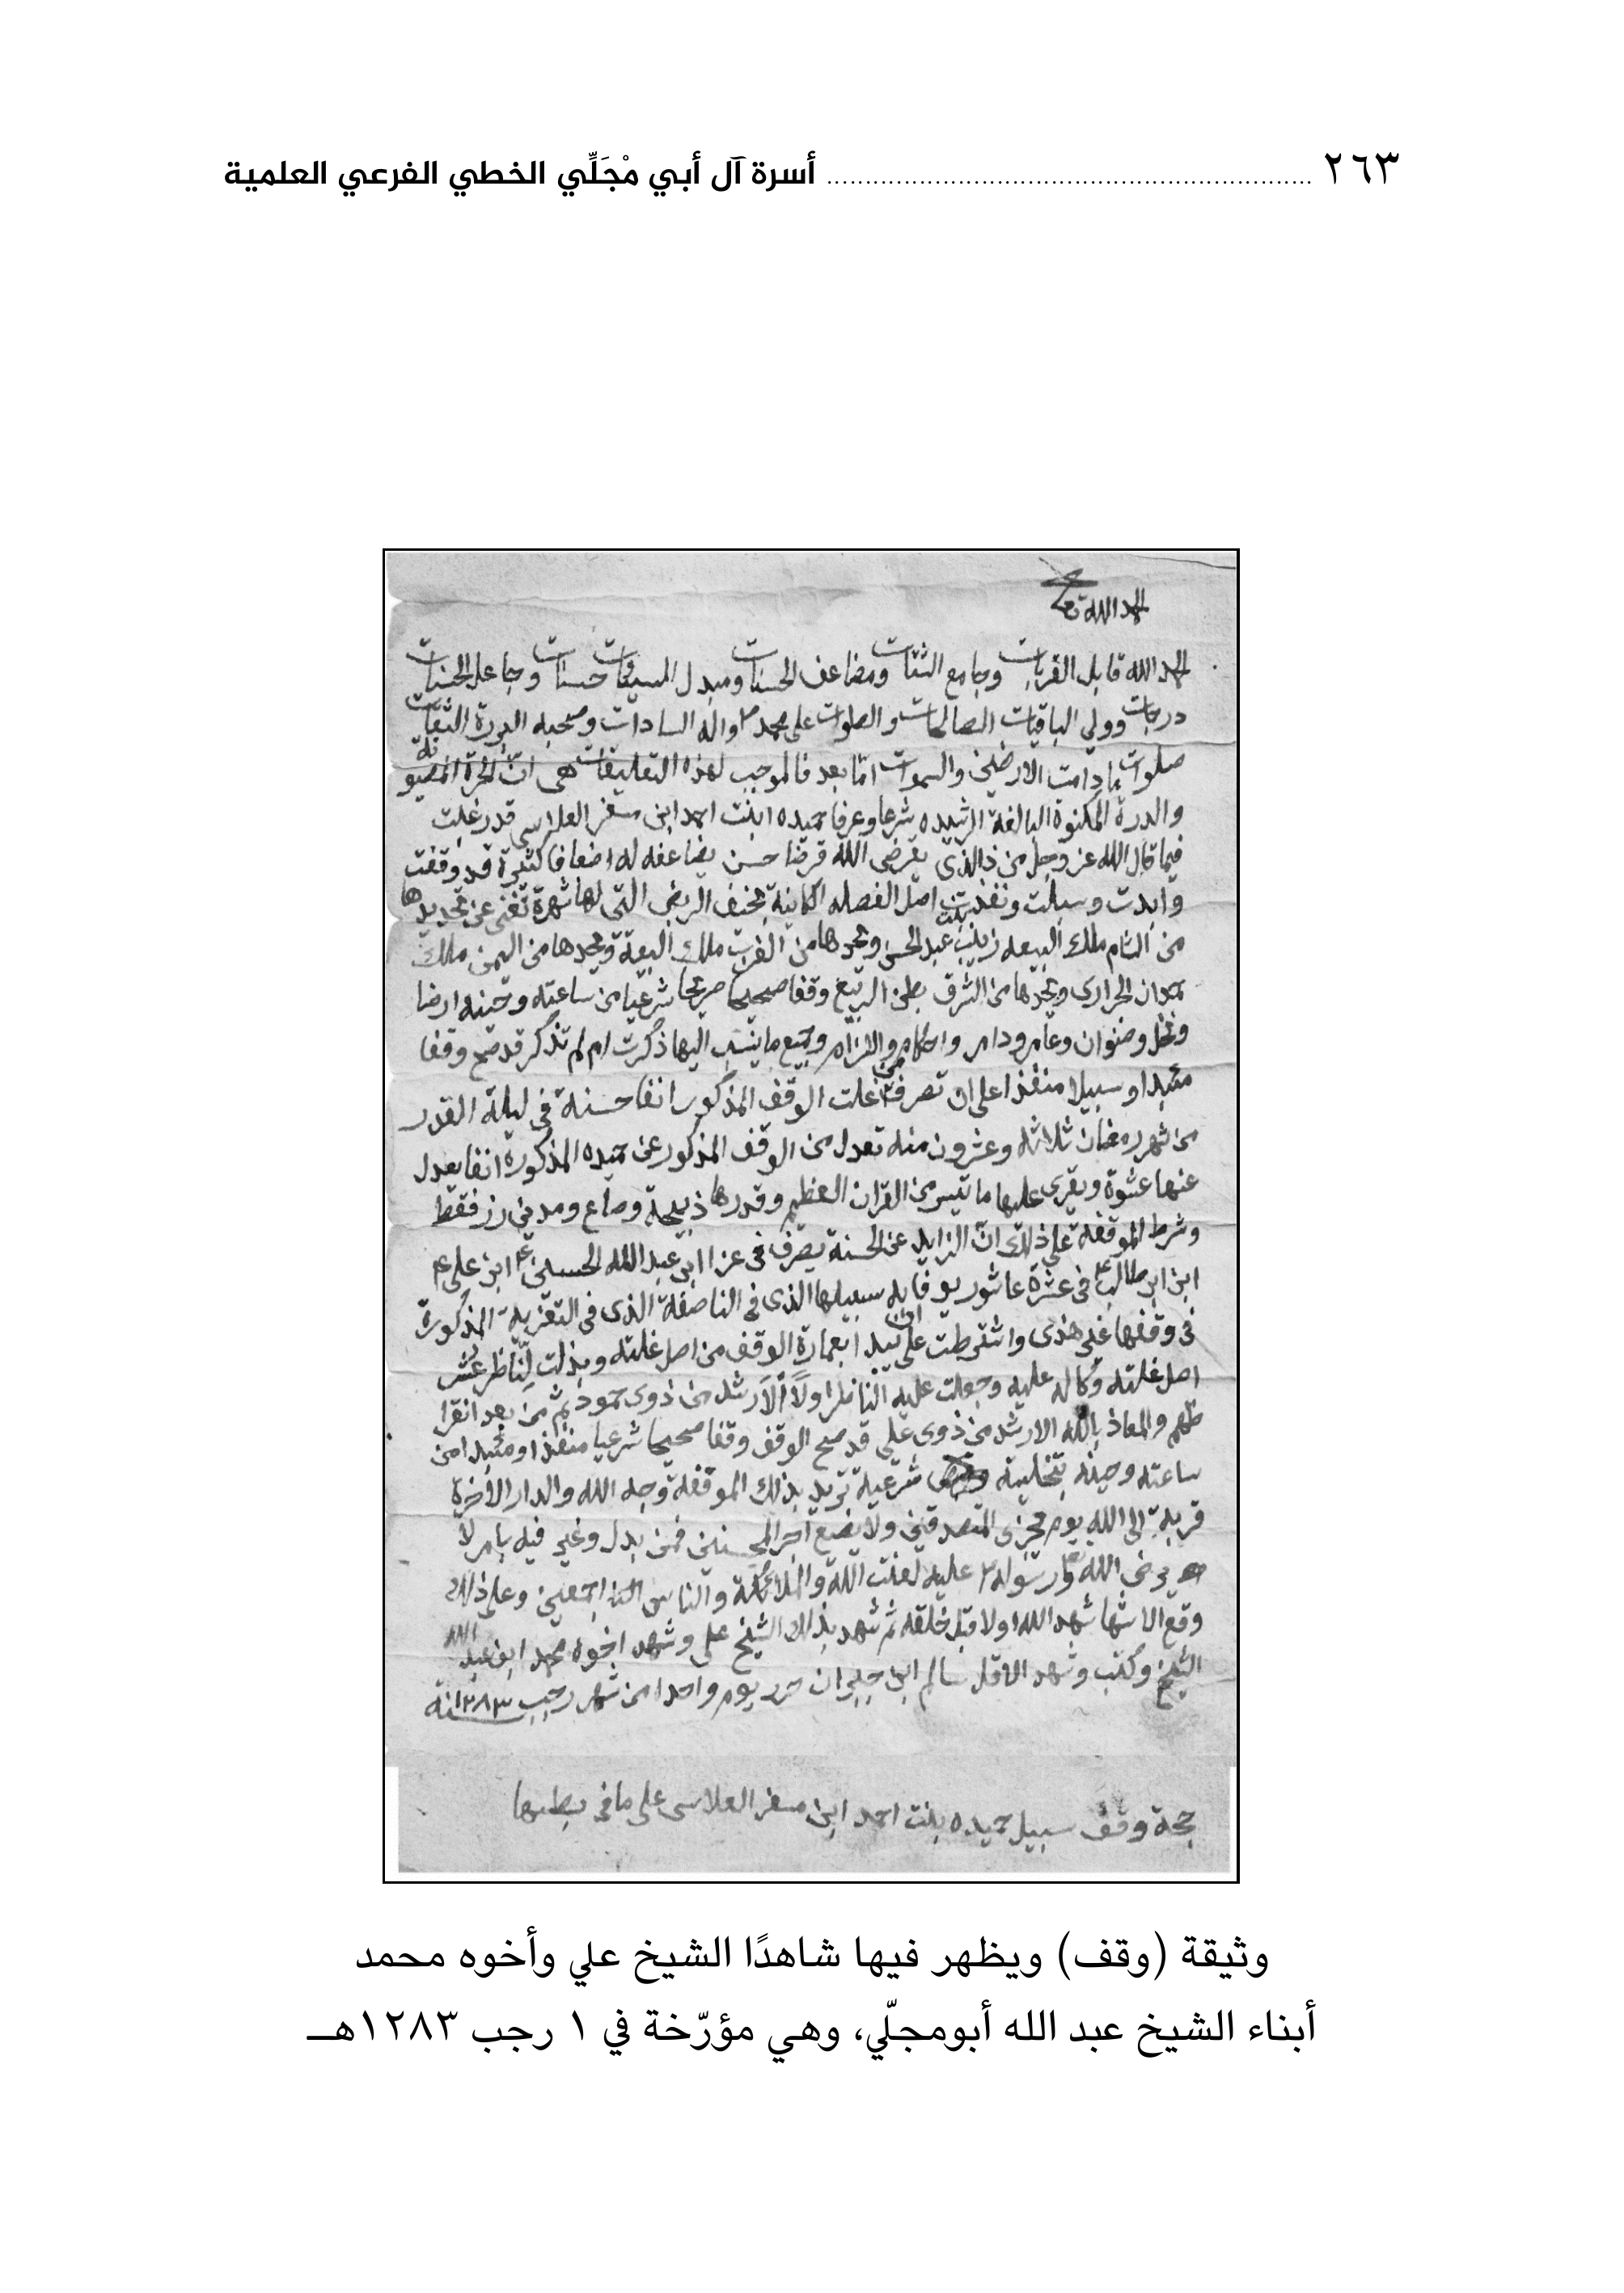 ٢٦٣ ............................................................... أسرة آل أبي مْجَلِّي الخطي الفرعي العلمية
الحمد الله تعالى
الحمد الله قابل القربات وجامع الشتات ومضاعف الحسنات ومبدل السيئات حسنات وجاعل الحسنات
درجات وولي الباقيات الصالحات والصلوات على محمد واله السادات وصحبه البررة الثقات
صلوات ما دامت الارضين والسموات اما بعد فالموجب لهذه التعليقات هي ان الحرة المصونة
والدرة المكنونة البالغة الرشيده شرعا وعرفا حميده ابنت احمد ابن مسفر العلاسي قد رغبت
فيما قال الله عز وجل من ذالذي يقرض الله قرضا حسن يضاعفه له اضعافا كثيرة قد وقفت
وابدت وسبلت ونفذت اصل الفصله الكاينة بخيف الريض التي لها شهرة تغني عن تحديدها
من الشام ملك البيعه زينب بنت عبد المحسن ويحدها من الغرب ملك البيعة ويحدها من اليمن ملك
الحراري ويحدها من الشرق بطن الريع وقفا صحيحا صريحا شرعيا من ساعته وحينه ارضا
ونخل وصنوان وعامر ودامر واحكام والزام وجميع ما ينسب اليها ذكرت ام لم تذكر قد صح وقفا
مئبدا وسبيلا منفذا على ان تصرف من غلت الوقف المذكور انفا حسنة في ليلة القدر
من شهر رمضان ثلاثه وعشرون منه تعدل من الوقف المذكور عن حميده المذكورة انفا يعدل
عنها عشوة ويقرى عليها ما تيسر من القران العظيم وقدرها ذبيحة وصاع ومد في رز فقط
وشرط الموقفة على ذلك ان الزايد عن الحسنة يصرف في عزا ابي عبد الله الحسين ابن علي
ابن ابي طالب في عشرة عاشور سبيلها الذي في الناصفة الذي في التعزية المذكورة
في وقفها على هذى واشترطت على ان يبدا بعمارة الوقف من اصل غلته وبذلت للناظر عشر
اصل غلته وكاله عليه وجعلت عليه الناظر اولا الارشد من ذوى حمود ثم من بعد انقرا
ظهم والمعاذ بالله الارشد من ذوى علي قد صح الوقف وقفا صحيحا شرعيا منفذا ومئبدا من
ساعته وحينه بتخلية شرعية تريد بذلك الموقفة وجه الله والدار الاخرة
قربة الى الله يوم يجزى المتصدقين ولا يضيع اجر المحسنين فمن بدل وغير فيه بامر لا
يرضى الله ورسوله عليه لعنت الله والملائكة والناس اجمعين وعلى ذلك
وقع الاشهاد شهد الله اولا قبل خلقه ثم شهد بذلك الشيخ علي وشهد اخوه محمد ابن عبد الله
الشيخ وكتب وشهد الاقل سالم ابن جبران حرر يوم واحد من شهر رجب ١٢٨٣ سنة
حجة وقف سبيل حميده بنت احمد ابن مسفر العلاسى على ما في بطنها
وثيقة (وقف) ويظهر فيها شاهدًا الشيخ علي وأخوه محمد
أبناء الشيخ عبد الله أبومجلّي، وهي مؤرّخة في ١ رجب ١٢٨٣هـ